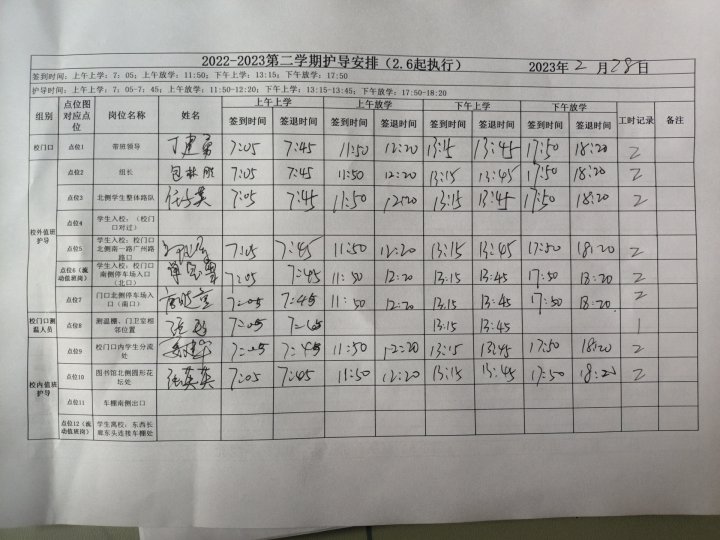 2022-2023第二学期护导安排（2.6起执行） 2023年 2 月 28日
签到时间：上午上学：7：05；上午放学：11:50；下午上学：13:15；下午放学：17:50
护导时间：上午上学：7：05-7：45；上午放学：11:50-12:20；下午上学：13:15-13:45；下午放学：17:50-18:20
组别 点位图对应点位 岗位名称 姓名 上午上学 上午放学 下午上学 下午放学 工时记录 备注
签到时间 签退时间 签到时间 签退时间 签到时间 签退时间 签到时间 签退时间
校门口 点位1 带班领导 丁建勇 7:05 7:45 11:50 12:20 13:15 13:45 17:50 18:20 2
校外值班护导
点位2 组长 包林胜 7:05 7:45 11:50 12:20 13:15 13:45 17:50 18:20 2
点位3 北侧学生整体路队 7:05 7:45 11:50 12:20 13:15 13:45 17:50 18:20 2
点位4 学生入校：（校门口对过）
点位5 学生入校：校门口北侧南一路广州路路口 7:05 7:45 11:50 12:20 13:15 13:45 17:50 18:20 2
点位6（流动值班岗） 学生入校：校门口南侧停车场入口（北口） 7:05 7:45 11:50 12:20 13:15 13:45 17:50 18:20 2
点位7 门口北侧停车场入口（南口） 7:05 7:45 11:50 12:20 13:15 13:45 17:50 18:20 2
校门口测温人员 点位8 测温棚、门卫室相邻位置 7:05 7:45 13:15 13:45 1
校内值班护导
点位9 校门口内学生分流处 7:05 7:45 11:50 12:20 13:15 13:45 17:50 18:20 2
点位10 图书馆北侧圆形花坛处 张英英 7:05 7:45 11:50 12:20 13:15 13:45 17:50 18:20 2
点位11 车棚南侧出口
点位12（流动值班岗） 学生离校：东西长廊东头连接车棚处